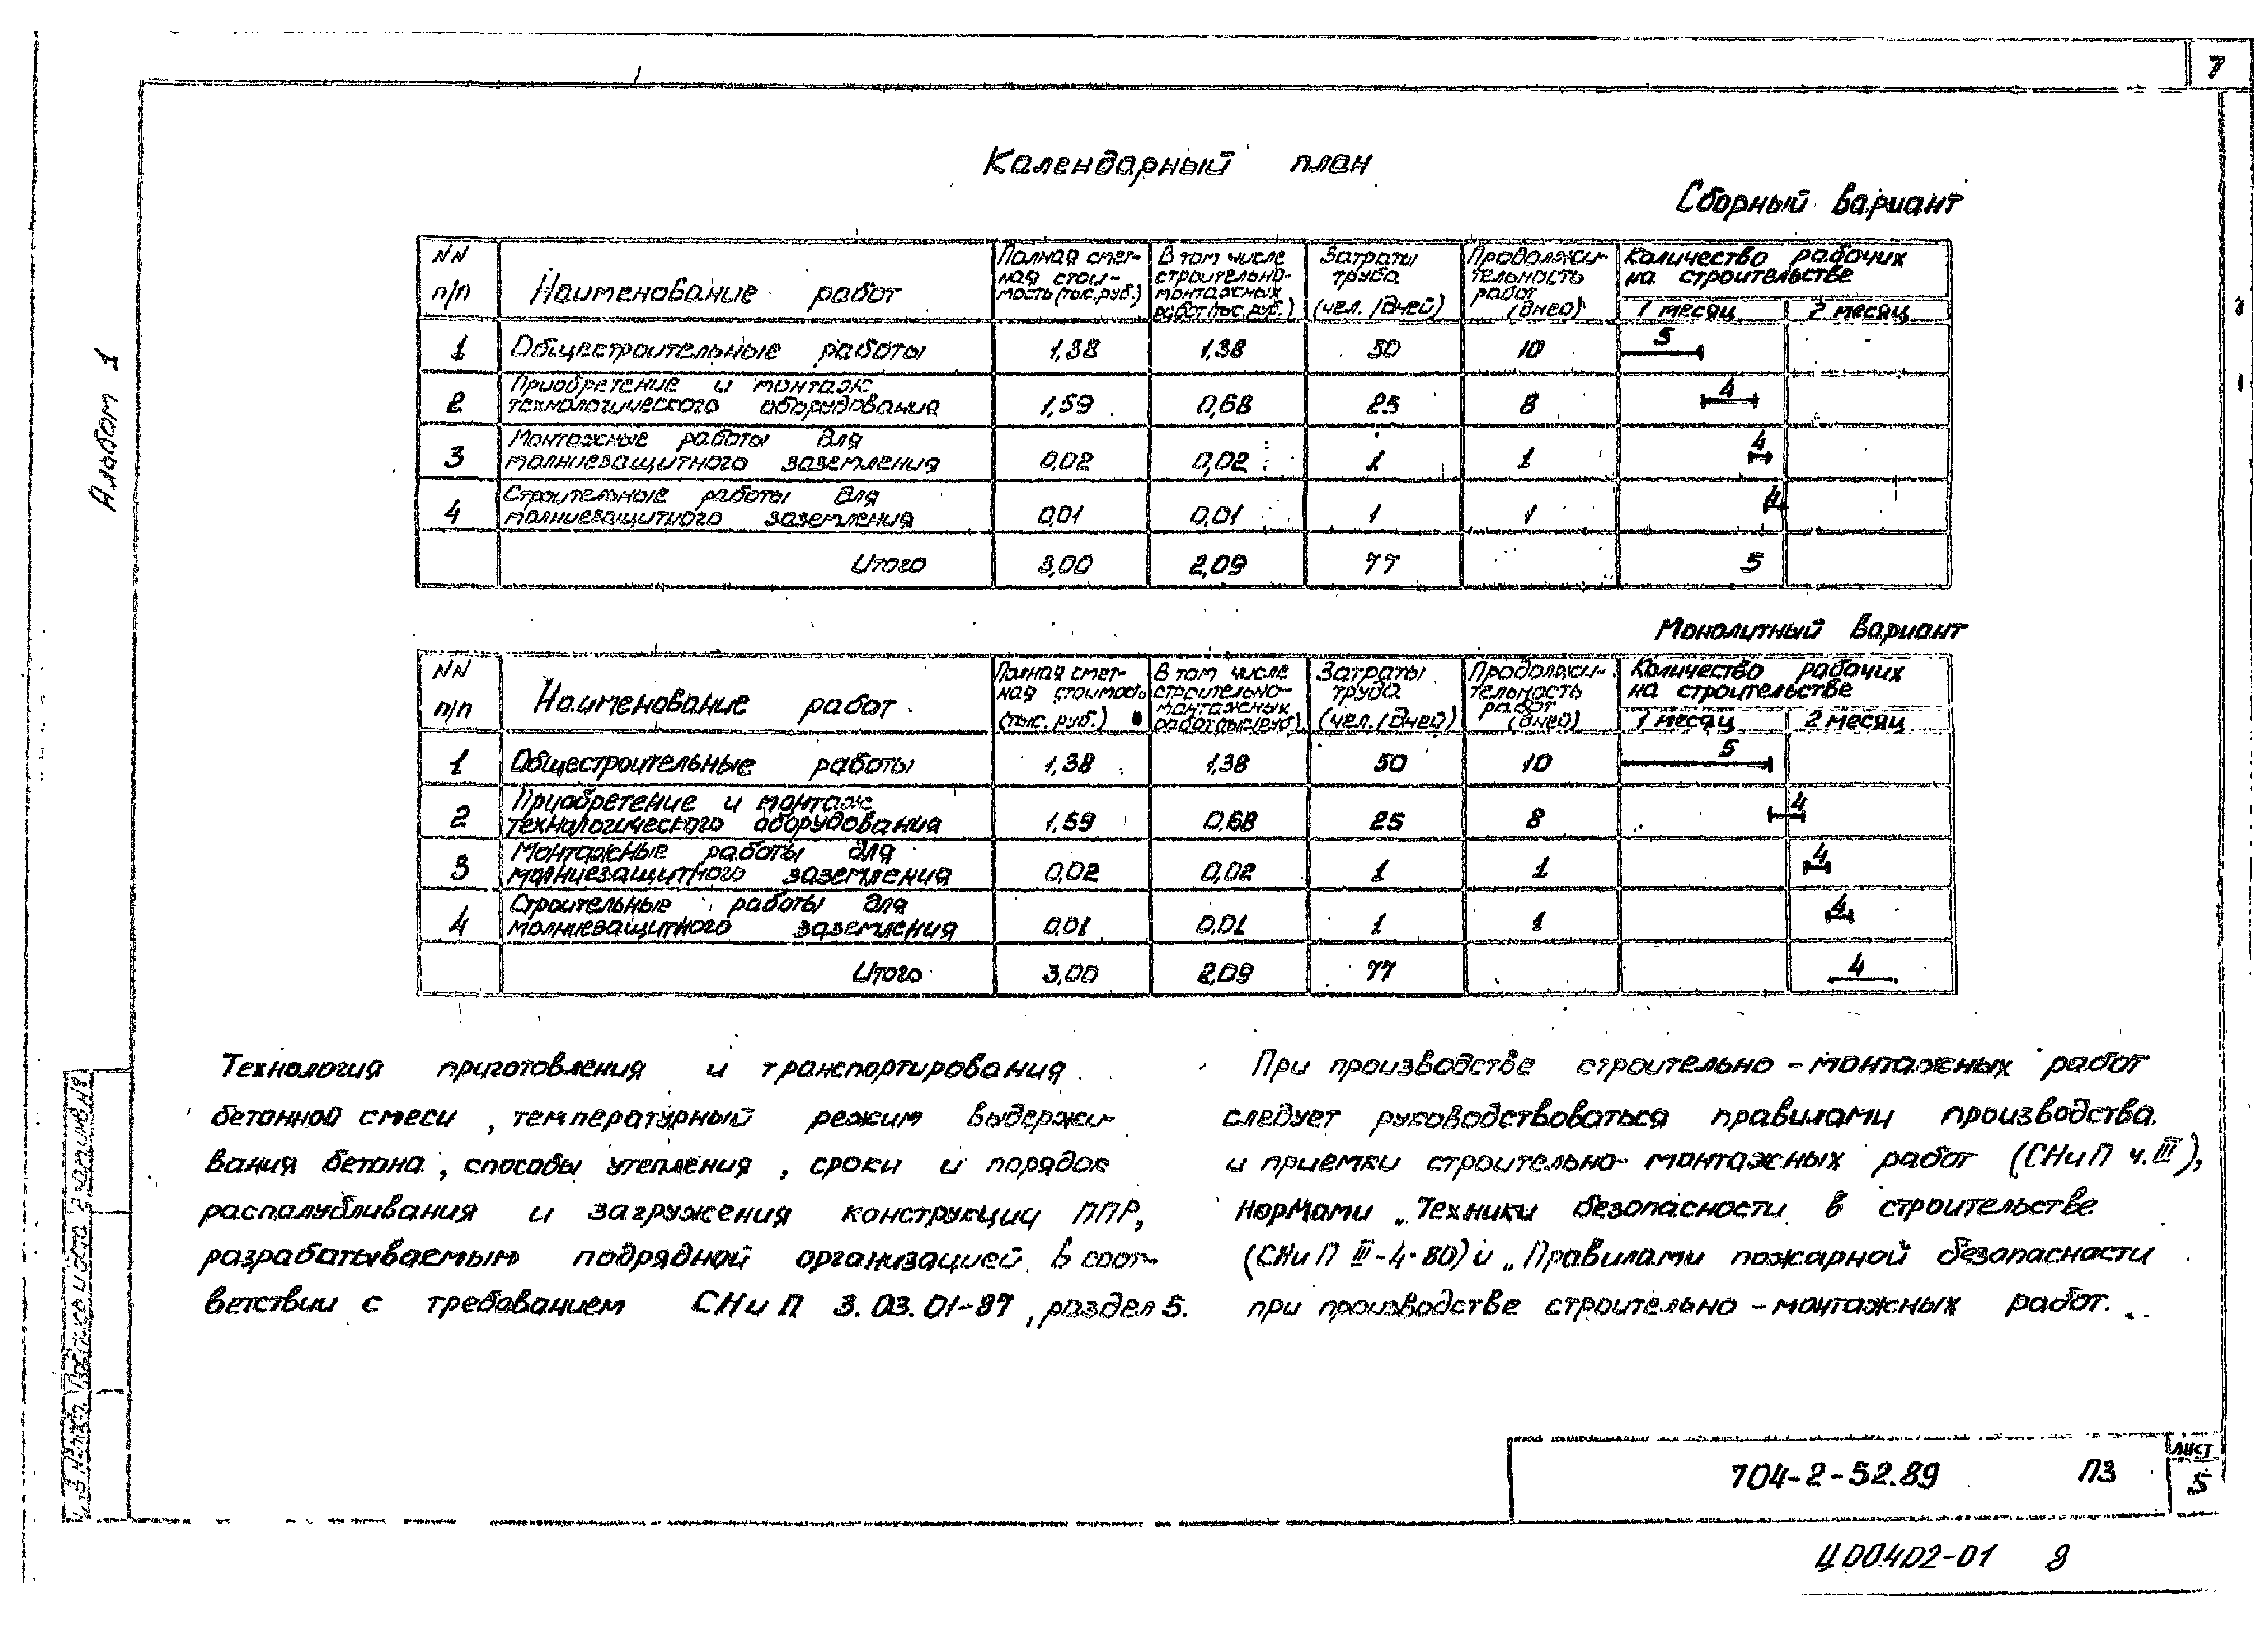 7
Альбом 1
Календарный план
Сборный вариант
NN п/п
Наименование работ
Полная смет-
ная стои-
мость (тыс.руб.)
В том числе
строительно-
монтажных
работ (тыс.руб.)
Затраты
труда
(чел./дней)
Продолжи-
тельность
работ
(дней)
Количество рабочих
на строительстве
1 месяц 2 месяц
1 Общестроительные работы 1,38 1,38 50 10 5
Приобретение и монтаж
2 технологического оборудования 1,59 0,68 25 8 4
Монтажные работы для
3 молниезащитного заземления 0,02 0,02 1 1 4
Строительные работы для
4 молниезащитного заземления 0,01 0,01 1 1 4
Итого 3,00 2,09 77 5
Монолитный вариант
NN п/п
Наименование работ
Полная смет-
ная стоимость
(тыс. руб.)
В том числе
строительно-
монтажных
работ (тыс/руб)
Затраты
труда
(чел./дней)
Продолжи-
тельность
работ
(дней)
Количество рабочих
на строительстве
1 месяц 2 месяц
1 Общестроительные работы 1,38 1,38 50 10 5
Приобретение и монтаж
2 технологического оборудования 1,59 0,68 25 8 4
Монтажные работы для
3 молниезащитного заземления 0,02 0,02 1 1 4
Строительные работы для
4 молниезащитного заземления 0,01 0,01 1 1 4
Итого 3,00 2,09 77 4
Технология приготовления и транспортирования
бетонной смеси, температурный режим выдержи-
вания бетона, способы утепления, сроки и порядок
распалубливания и загружения конструкции ППР,
разрабатываемым подрядной организацией в соот-
ветствии с требованием СНиП 3.03.01-87, раздел 5.
При производстве строительно-монтажных работ
следует руководствоваться правилами производства
и приемки строительно-монтажных работ (СНиП ч.III),
нормами „Техники безопасности в строительстве
(СНиП III-4-80) и „Правилами пожарной безопасности
при производстве строительно-монтажных работ.
704-2-52.89 ПЗ
Лист
5
Ц00402-01 8